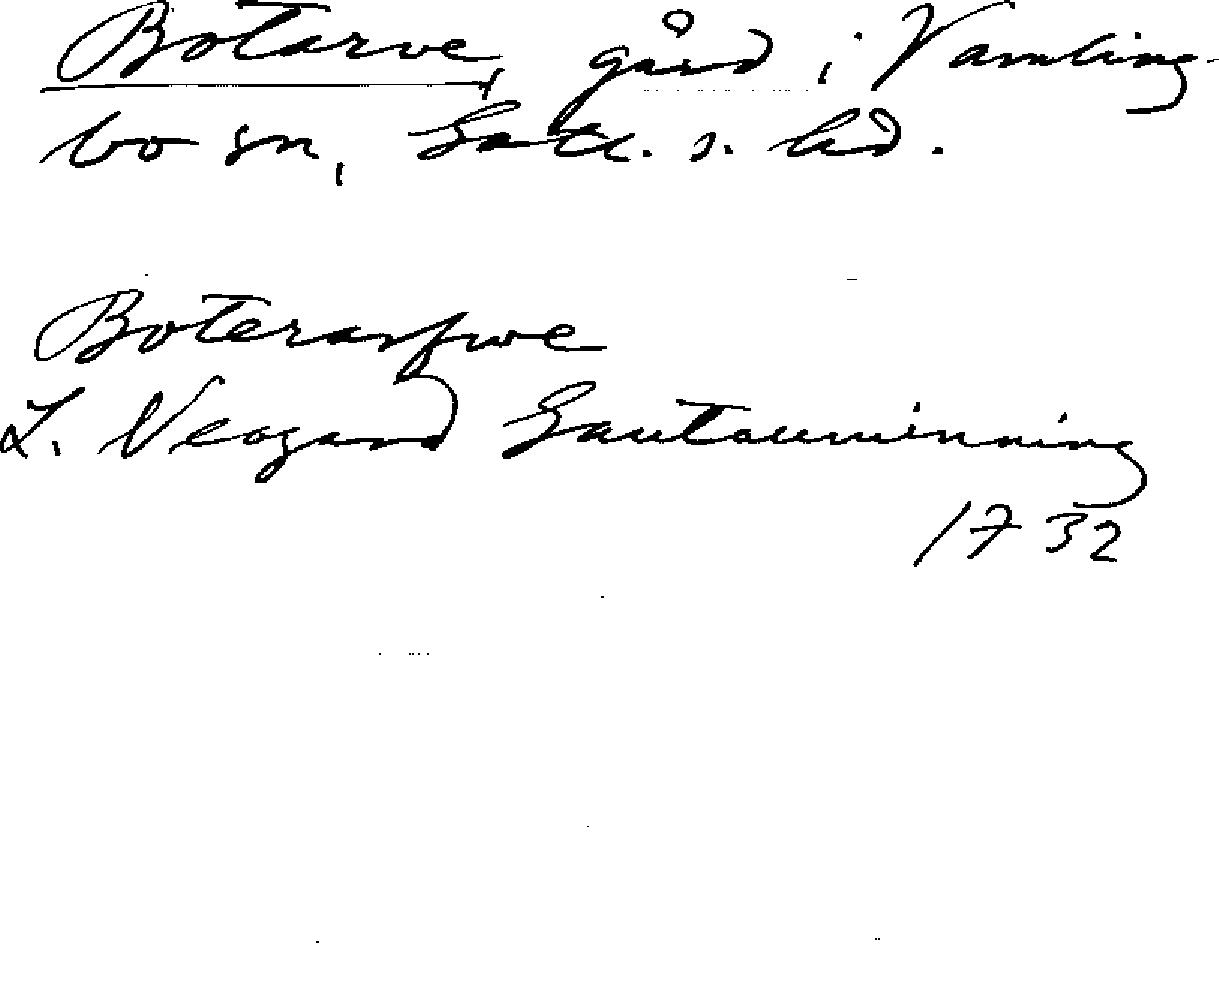 Botarve, gård i Vamling-
bo sn, Gotl. s. hd.
Boterarfwe
L. Neogard Gautauminning
1732